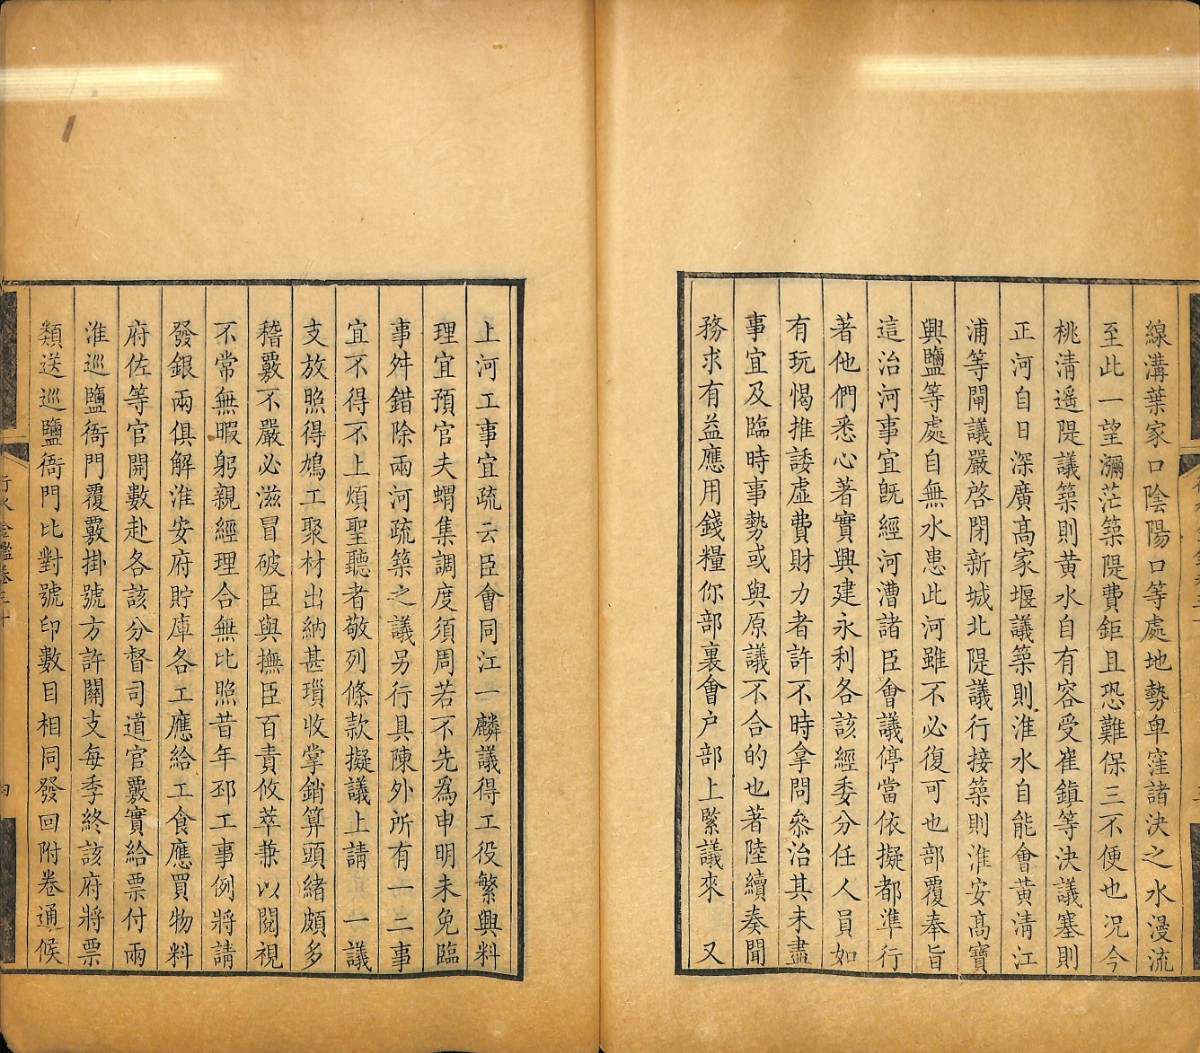 線溝葉家口陰陽口等處地勢卑窪諸決之水漫流
至此一望瀰茫築隄費鉅且恐難保三不便也況今
桃清遥隄議築則黄水自有容受崔鎮等決議塞則
正河自日深廣髙家堰議築則淮水自能會黄清江
浦等閘議嚴啓閉新城北隄議行接築則淮安髙寶
興鹽等處自無水患此河雖不必復可也部覆奉旨
這治河事宜旣經河漕諸臣會議停當依擬都準行
著他們悉心著實興建永利各該經委分任人員如
有玩愒推諉虚費財力者許不時拿問叅治其未盡
事宜及臨時事勢或與原議不合的也著陸續奏聞
務求有益應用錢糧你部裏會户部上緊議來　又
上河工事宜疏云臣會同江一麟議得工役繁興料
理宜預官夫蝟集調度須周若不先為申明未免臨
事舛錯除兩河疏築之議另行具陳外所有一二事
宜不得不上煩聖聽者敬列條款擬議上請　一議
支放照得鳩工聚材出納甚瑣收掌銷算頭緒頗多
稽覈不嚴必滋冒破臣與撫臣百責攸萃兼以閱視
不常無暇躬親經理合無比照昔年邳工事例將請
發銀兩俱解淮安府貯庫各工應給工食應買物料
府佐等官開數赴各該分督司道官覈實給票付兩
淮巡鹽衙門覆覈掛號方許關支每季終該府將票
類送巡鹽衙門比對號印數目相同發回附卷通候